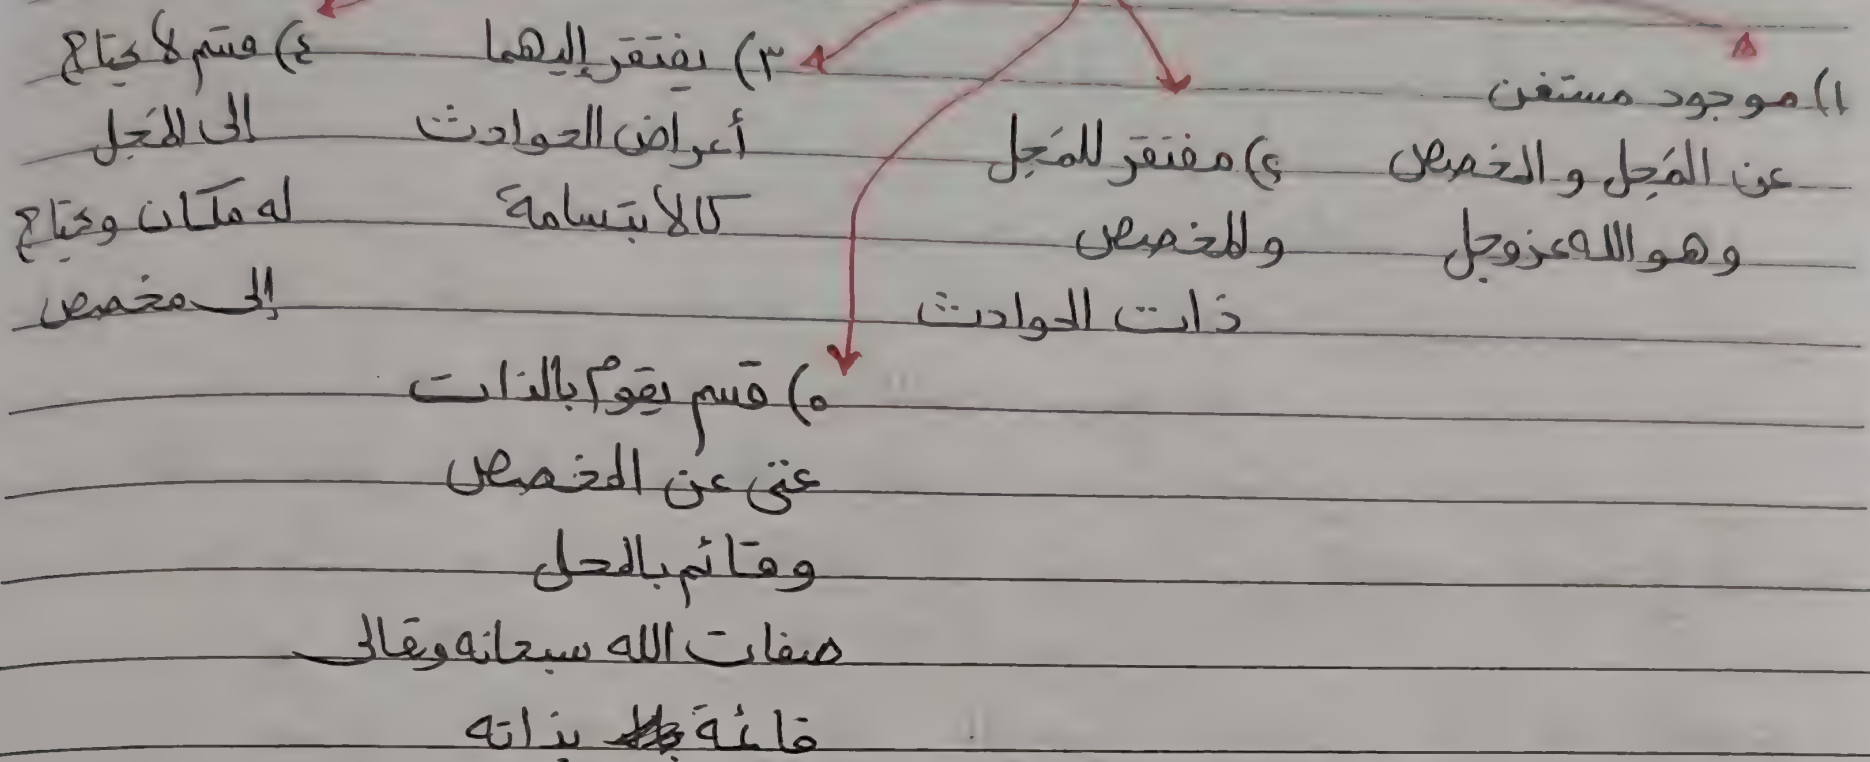 ١) موجود مستغن
عن المَحل والمخصص
وهو الله عزوجل
٢) مفتقر للمَحل
وللمخصص
ذات الحوادث
٣) يفتقر إليهما
أعراض الحوادث
كالابتسامة
٤) قسم لا يحتاج
إلى المَحل
له مكان ويحتاج
إلى مخصص
٥) قسم يقوم بالذات
غني عن المخصص
وقائم بالمحل
صفات الله سبحانه وتعالى
قائمة بذاته